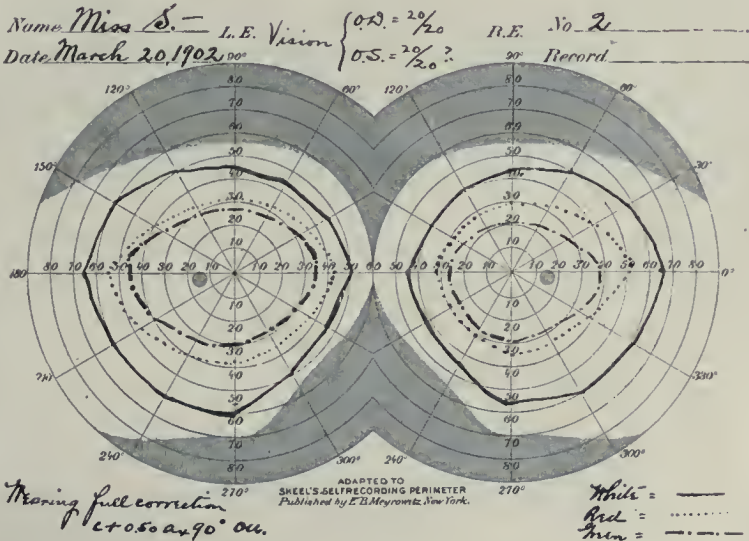 Name Miss S.- L.E. Vision { O.D. = 20/20 R.E. No 2
Date March 20, 1902 O.S. = 20/20 ? Record
90° 90°
120° 60° 120° 60°
150° 30°
80 70 60 50 40 30 20 10
180 80 70 60 50 40 30 20 10 10 20 30 40 50 60 50 40 30 20 10 10 20 30 40 50 60 70 80 0°
20 30 40 50 60 70 80
210 330°
240° 300° 240° 300°
270° 270°
ADAPTED TO
SKEEL'S SELF RECORDING PERIMETER
Published by E.B. Meyrowitz, New York.
Wearing full correction
c + 0.50 ax 90° O.U.
White =
Red =
Green =